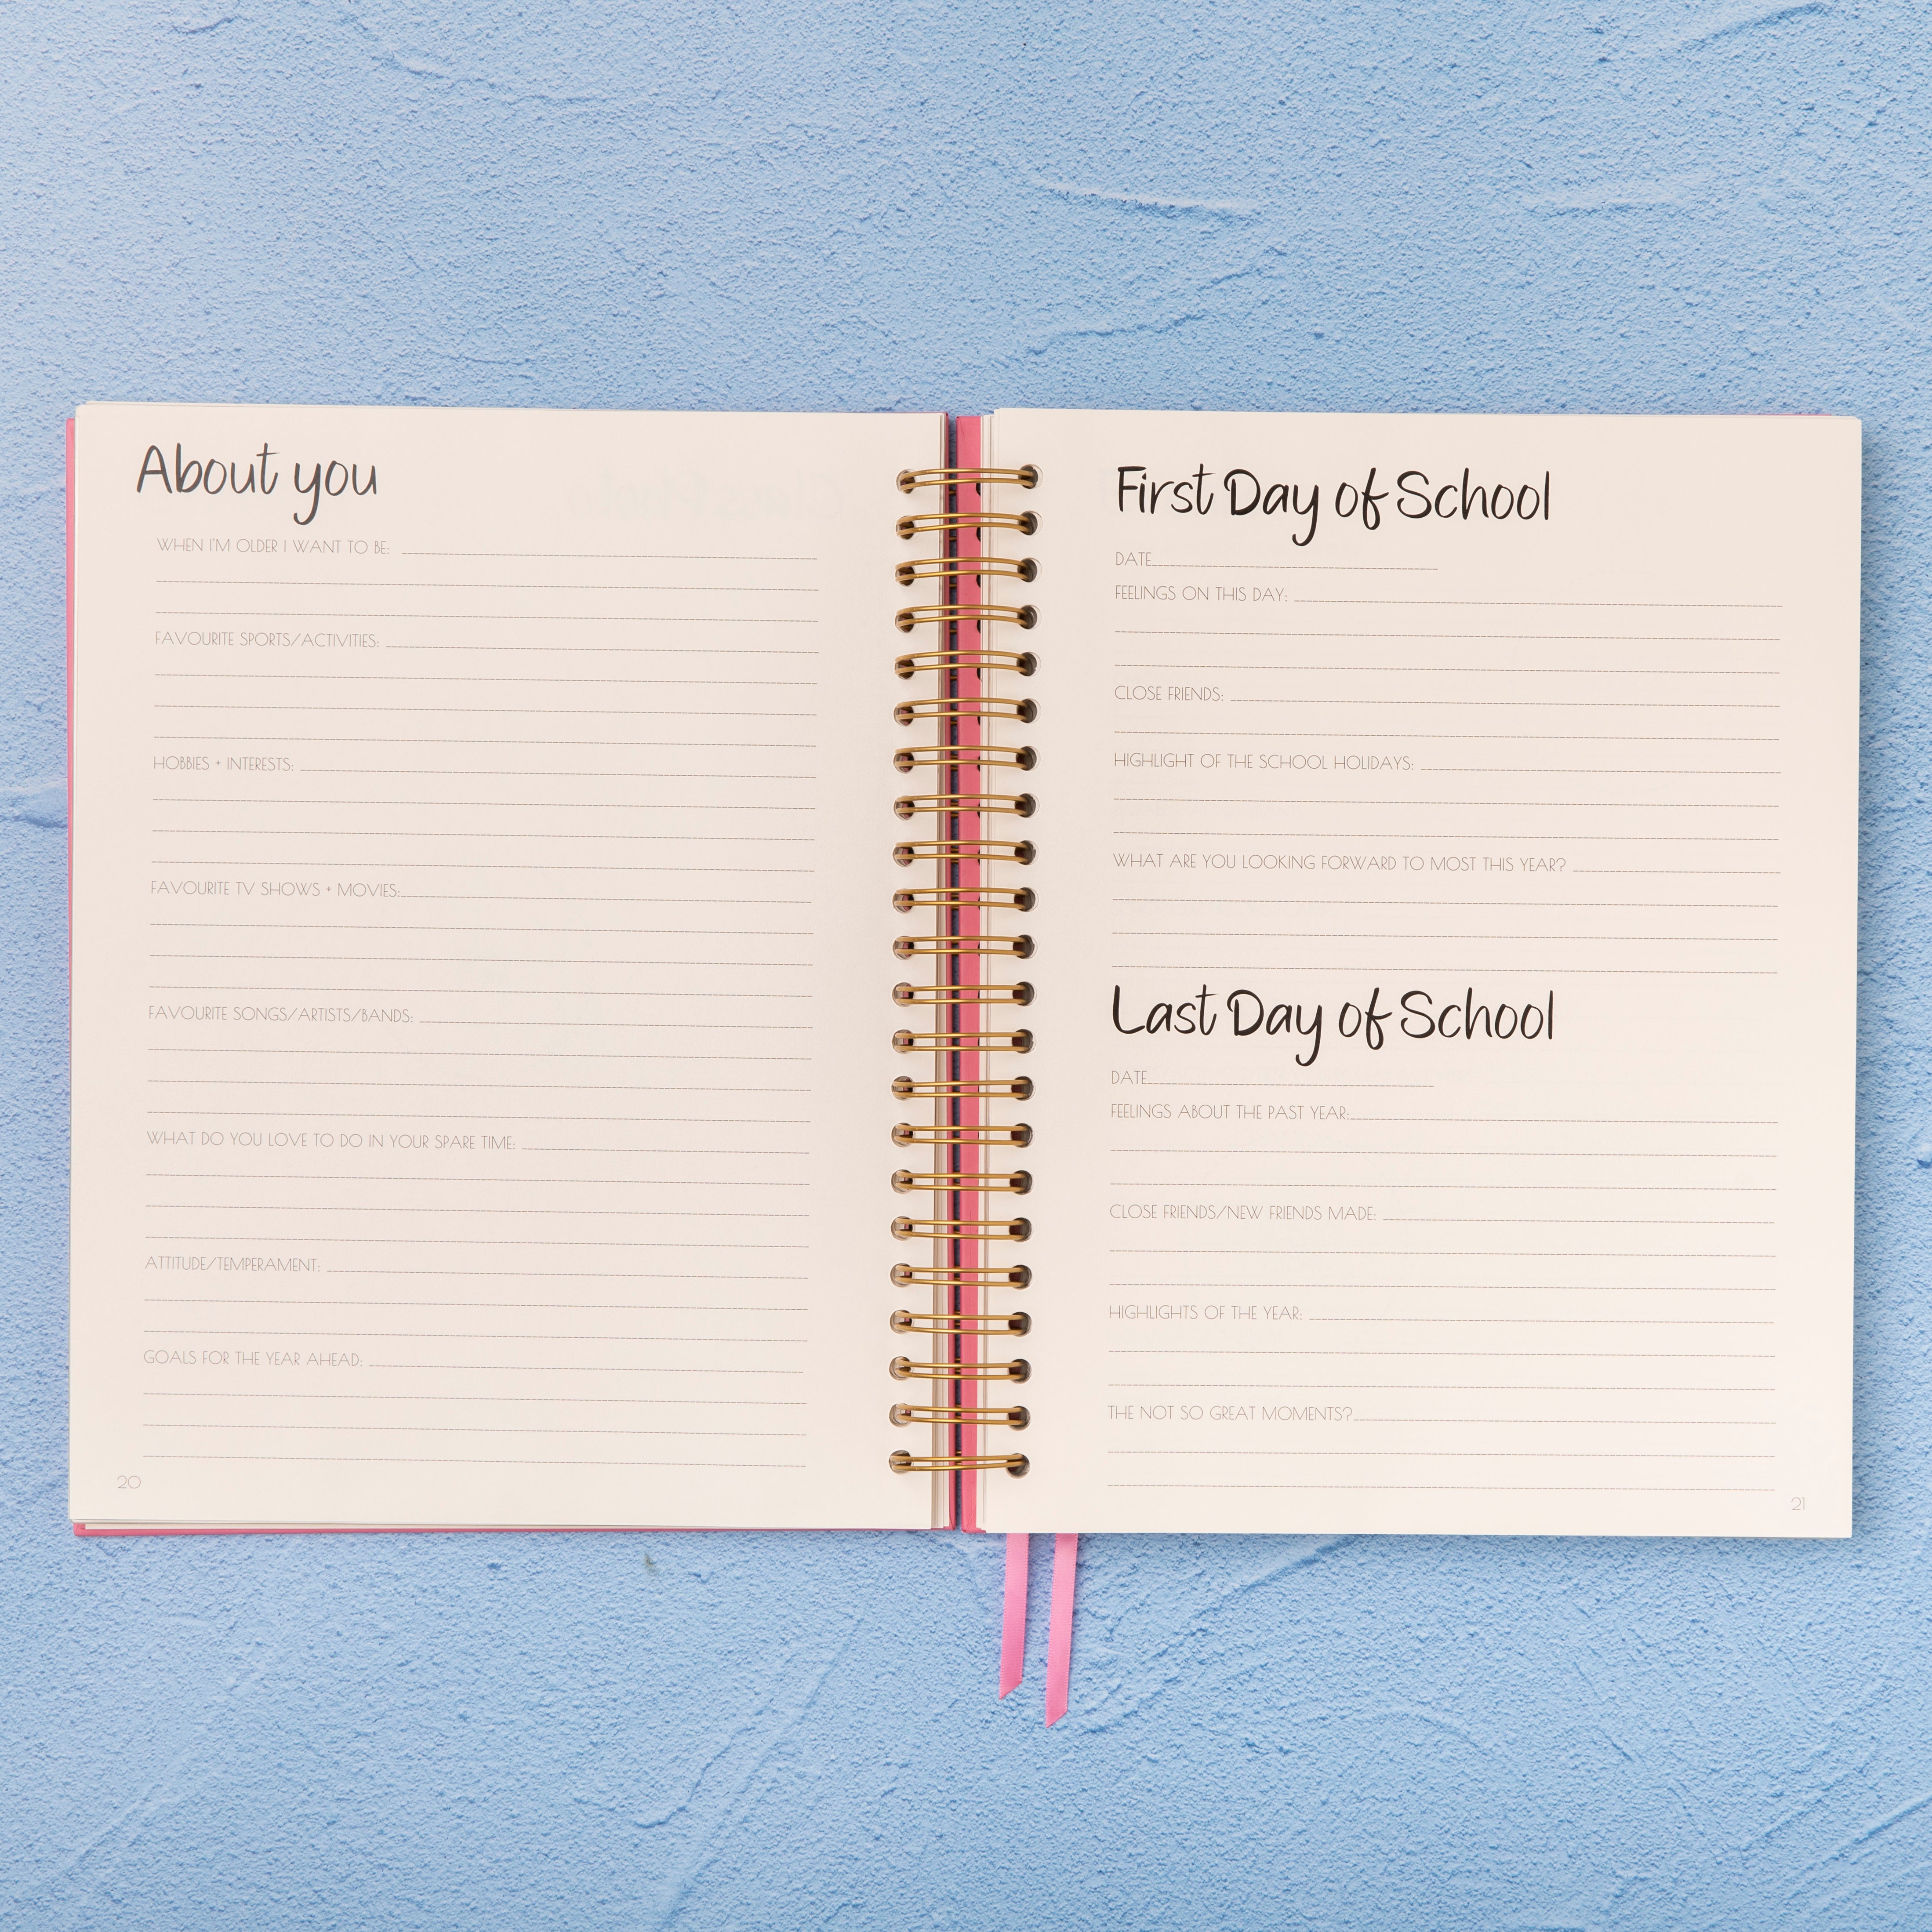 About you
WHEN I'M OLDER I WANT TO BE:
FAVOURITE SPORTS/ACTIVITIES:
HOBBIES + INTERESTS:
FAVOURITE TV SHOWS + MOVIES:
FAVOURITE SONGS/ARTISTS/BANDS:
WHAT DO YOU LOVE TO DO IN YOUR SPARE TIME:
ATTITUDE/TEMPERAMENT:
GOALS FOR THE YEAR AHEAD:
20
First Day of School
DATE
FEELINGS ON THIS DAY:
CLOSE FRIENDS:
HIGHLIGHT OF THE SCHOOL HOLIDAYS:
WHAT ARE YOU LOOKING FORWARD TO MOST THIS YEAR?
Last Day of School
DATE
FEELINGS ABOUT THE PAST YEAR:
CLOSE FRIENDS/NEW FRIENDS MADE:
HIGHLIGHTS OF THE YEAR:
THE NOT SO GREAT MOMENTS?
21